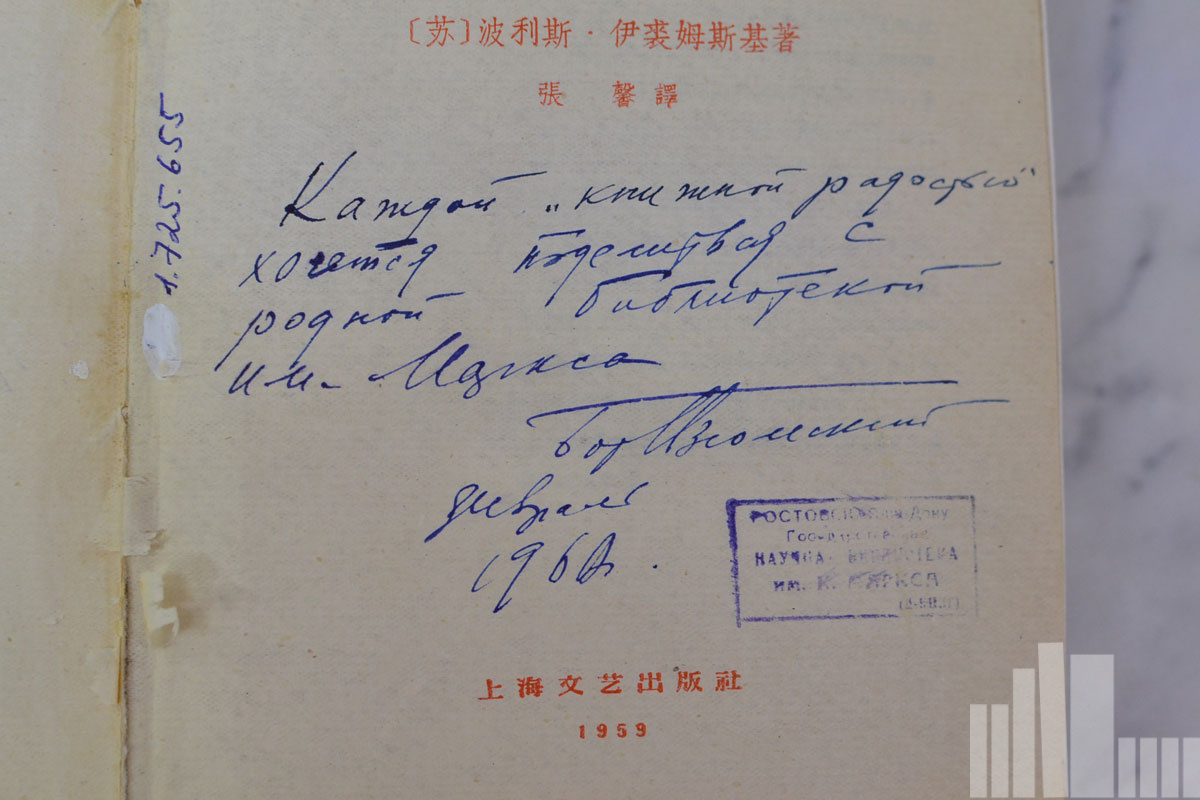 〔苏〕波利斯·伊裘姆斯基著
張 馨 譯
1.725.655
Каждой „книжной радостью"
хочется поделиться с
родной библиотекой
им. Маркса
Бор Изюмский
февраль
196
РОСТОВСКАЯ-на-Дону
Государственная
НАУЧНАЯ БИБЛИОТЕКА
им. К. МАРКСА
上海文艺出版社
1959